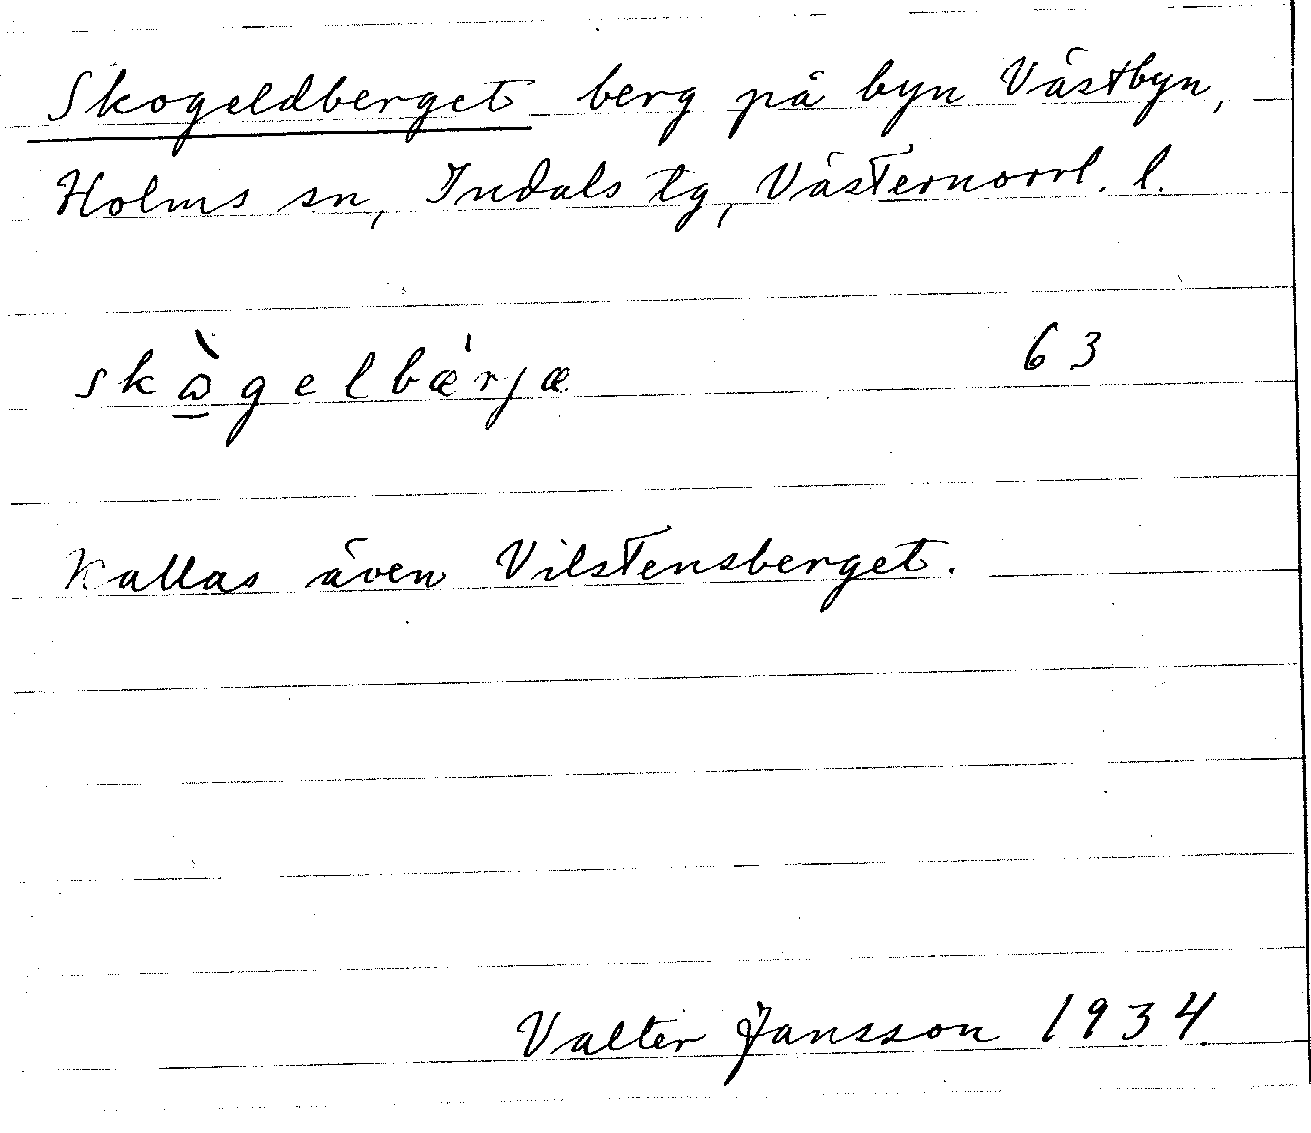 Skogeldberget berg på byn Västbyn,
Holms sn, Indals tg, Västernorrl. l.
skògelbæ'rjæ 63
Kallas även Vilstensberget.
Valter Jansson 1934.